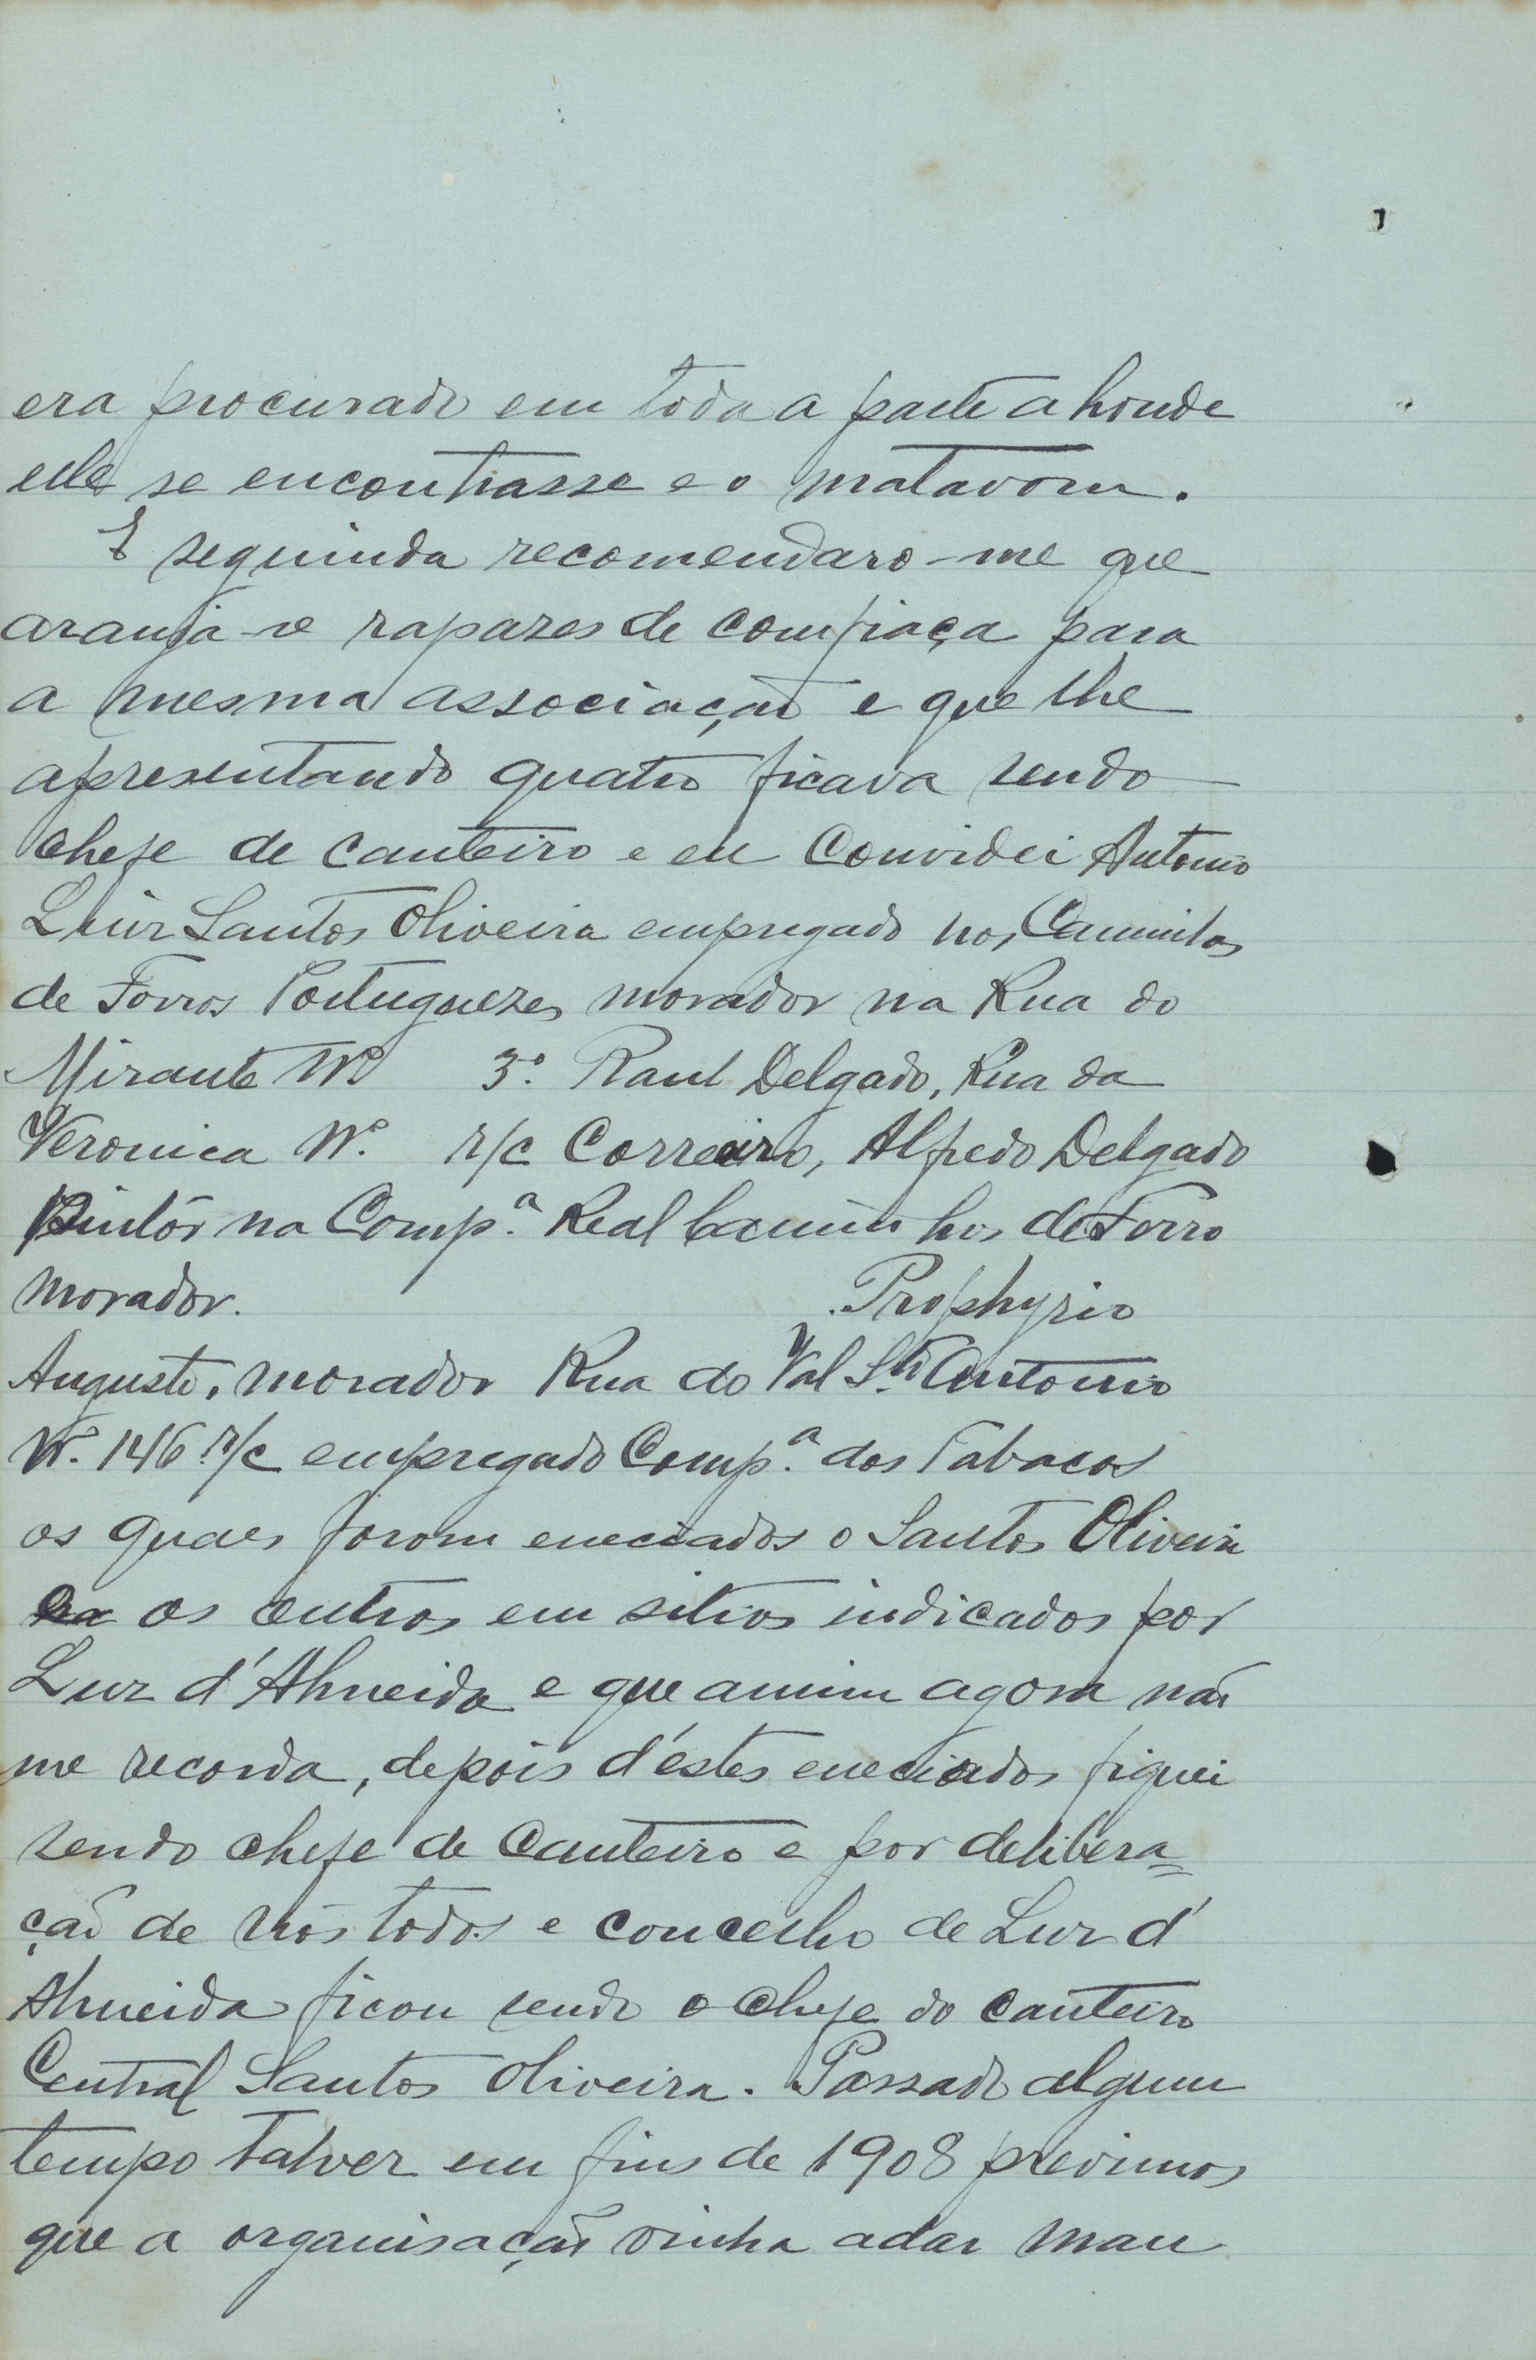 era procurado em toda a parte ahonde
elle se encontrasse e o matavom.
E seguinda recomendaro-me que
aranja-se rapazes de comfiaça para
a mesma associação e que lhe
apresentando quatro ficava sendo
chefe de canteiro e eu convidei Antonio
Luiz Santos Oliveira empregado nos Caminhos
de Forros Portuguezes morador na Rua do
Mirante Nº 3º. Raul Delgado, Rua da
Veronica Nº. r/c Correeiro, Alfredo Delgado
Pintôr na Comp.ª Real Caminhos de Forro
morador. Prophyrio
Augusto, morador Rua do Val Sto Antonio
Nº. 146 r/c empregado Comp.ª dos Tabacos
os quaes forom eneciados o Santos Oliveira
os outros em sitios indicados por
Luz d'Almeida e que amim agora não
me recorda, depois d'estes eneciados fiquei
sendo chefe de Canteiro e por delibera=
ção de nós todos e concelho de Luz d'
Almeida ficou sendo o chefe do canteiro
Central Santos Oliveira. Passado algum
tempo talvez em fins de 1908 previmos
que a organisação vinha adar mau